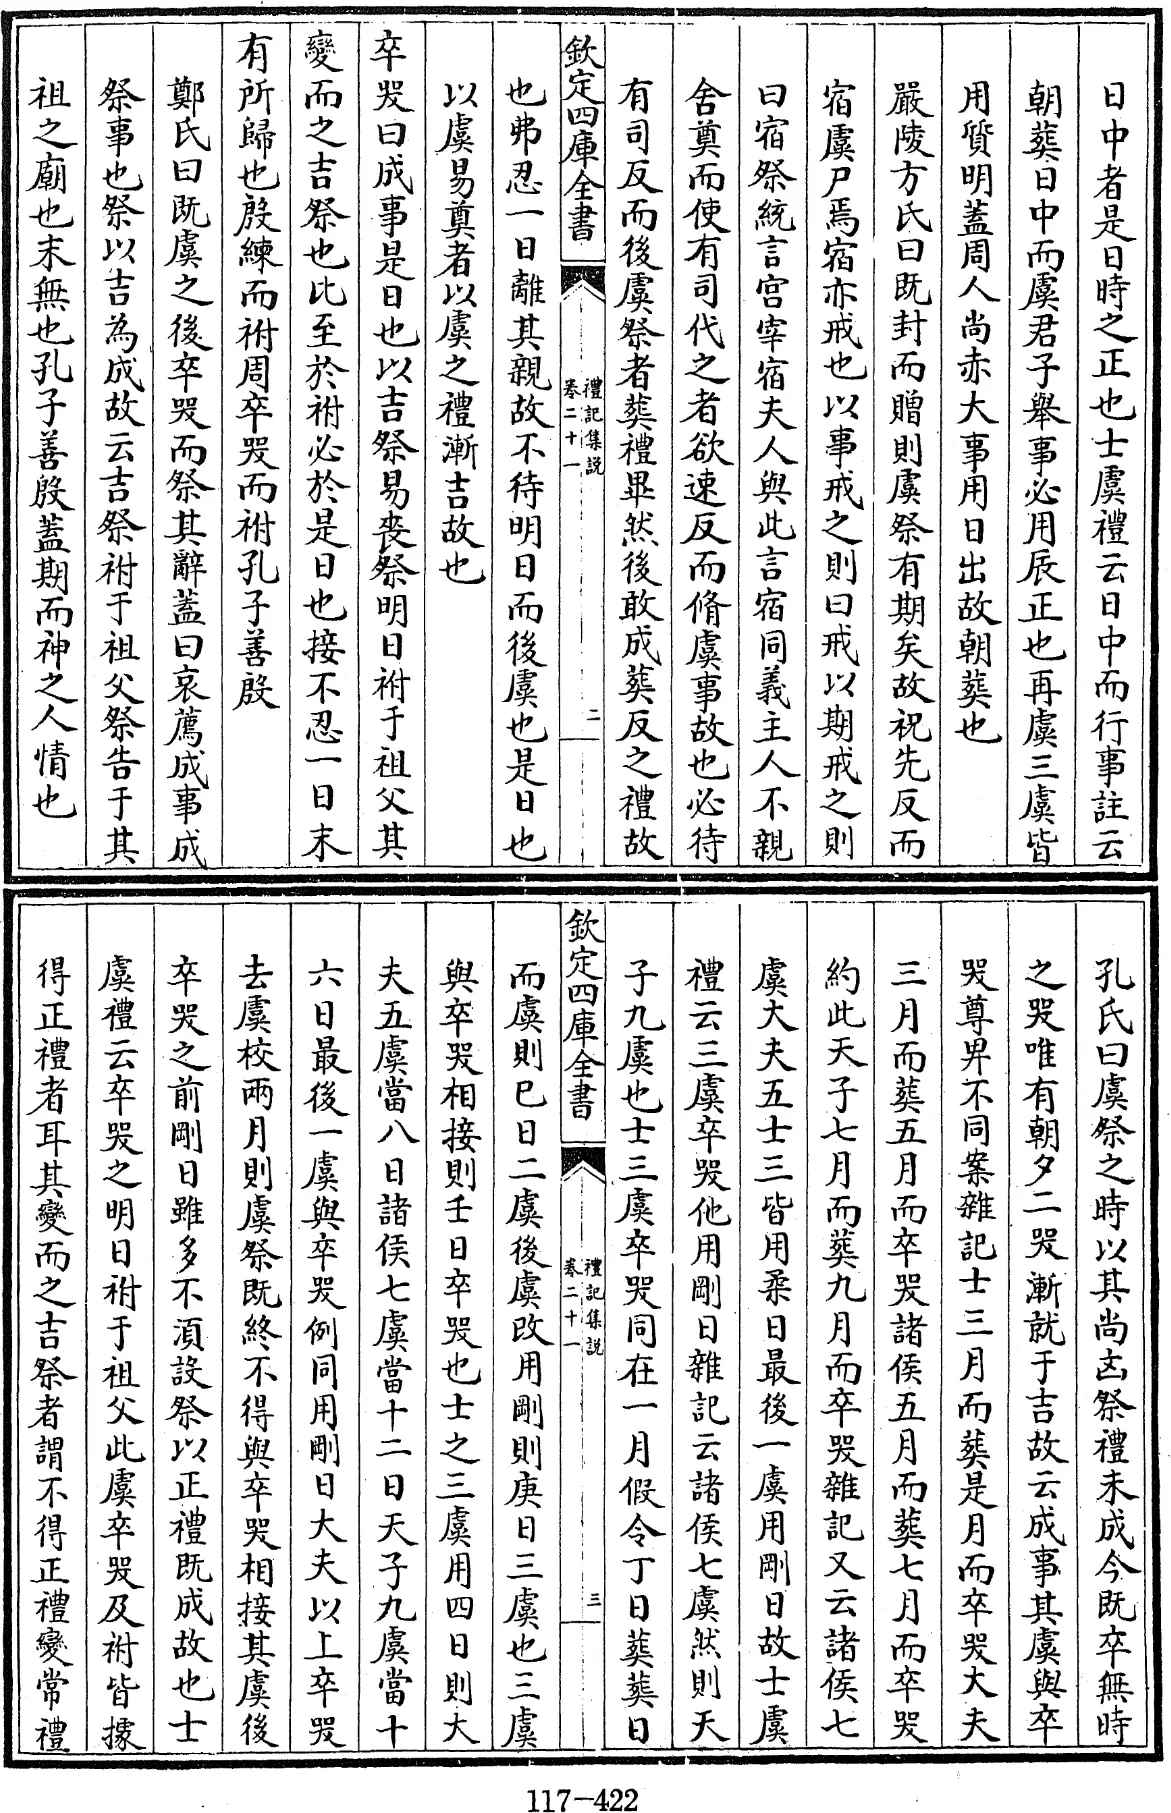 日中者是日時之正也士虞禮云日中而行事註云
朝葬日中而虞君子舉事必用辰正也再虞三虞皆
用質明蓋周人尚赤大事用日出故朝葬也
嚴陵方氏曰既封而贈則虞祭有期矣故祝先反而
宿虞尸焉宿亦戒也以事戒之則曰戒以期戒之則
曰宿祭統言宫宰宿夫人與此言宿同義主人不親
舍奠而使有司代之者欲速反而脩虞事故也必待
有司反而後虞祭者葬禮畢然後敢成葬反之禮故
欽定四庫全書
禮記集説
卷二十一
二
也弗忍一日離其親故不待明日而後虞也是日也
以虞易奠者以虞之禮漸吉故也
卒哭曰成事是日也以吉祭易喪祭明日祔于祖父其
變而之吉祭也比至於祔必於是日也接不忍一日末
有所歸也殷練而祔周卒哭而祔孔子善殷
鄭氏曰既虞之後卒哭而祭其辭蓋曰哀薦成事成
祭事也祭以吉為成故云吉祭祔于祖父祭告于其
祖之廟也末無也孔子善殷蓋期而神之人情也
孔氏曰虞祭之時以其尚凶祭禮未成今既卒無時
之哭唯有朝夕二哭漸就于吉故云成事其虞與卒
哭尊卑不同案雜記士三月而葬是月而卒哭大夫
三月而葬五月而卒哭諸侯五月而葬七月而卒哭
約此天子七月而葬九月而卒哭雜記又云諸侯七
虞大夫五士三皆用柔日最後一虞用剛日故士虞
禮云三虞卒哭他用剛日雜記云諸侯七虞然則天
子九虞也士三虞卒哭同在一月假令丁日葬葬日
欽定四庫全書
禮記集説
卷二十一
三
而虞則巳日二虞後虞改用剛則庚日三虞也三虞
與卒哭相接則壬日卒哭也士之三虞用四日則大
夫五虞當八日諸侯七虞當十二日天子九虞當十
六日最後一虞與卒哭例同用剛日大夫以上卒哭
去虞校兩月則虞祭既終不得與卒哭相接其虞後
卒哭之前剛日雖多不湏設祭以正禮既成故也士
虞禮云卒哭之明日祔于祖父此虞卒哭及祔皆據
得正禮者耳其變而之吉祭者謂不得正禮變常禮
117-422